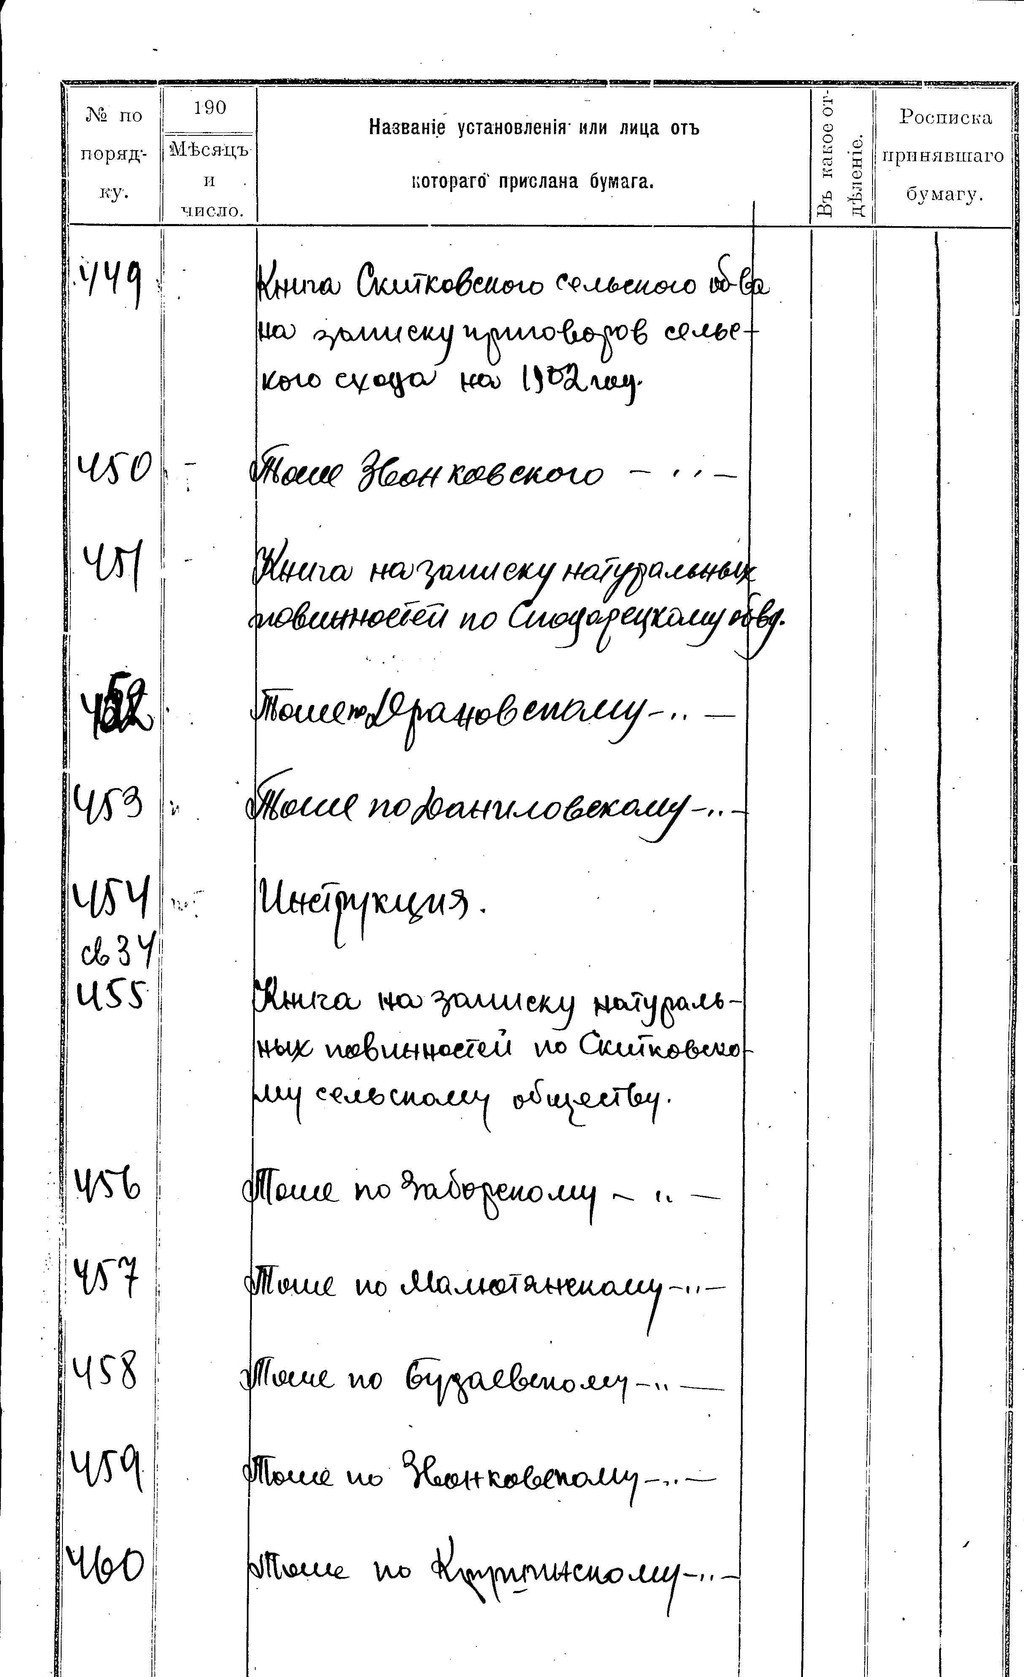 № по поряд-ку.
190
Мѣсяцъ и число.
Названіе установленія или лица отъ
котораго прислана бумага.
Въ какое от-дѣленіе.
Росписка принявшаго бумагу.
449 Книга Скитковского сельского об-ва
на записку приговоров сельс-
кого схода на 1902 год.
450 Тоже Звонковского — " —
451 Книга на записку натуральных
повинностей по обву.
452 Тоже по — " —
453 Тоже по Даниловскому — " —
454 Инструкция.
св 34
455 Книга на записку натураль-
ных повинностей по Скитковско-
му сельскому обществу.
456 Тоже по Заборскому — " —
457 Тоже по Малютянскому — " —
458 Тоже по Будаевскому — " —
459 Тоже по Звонковскому — " —
460 Тоже по — " —